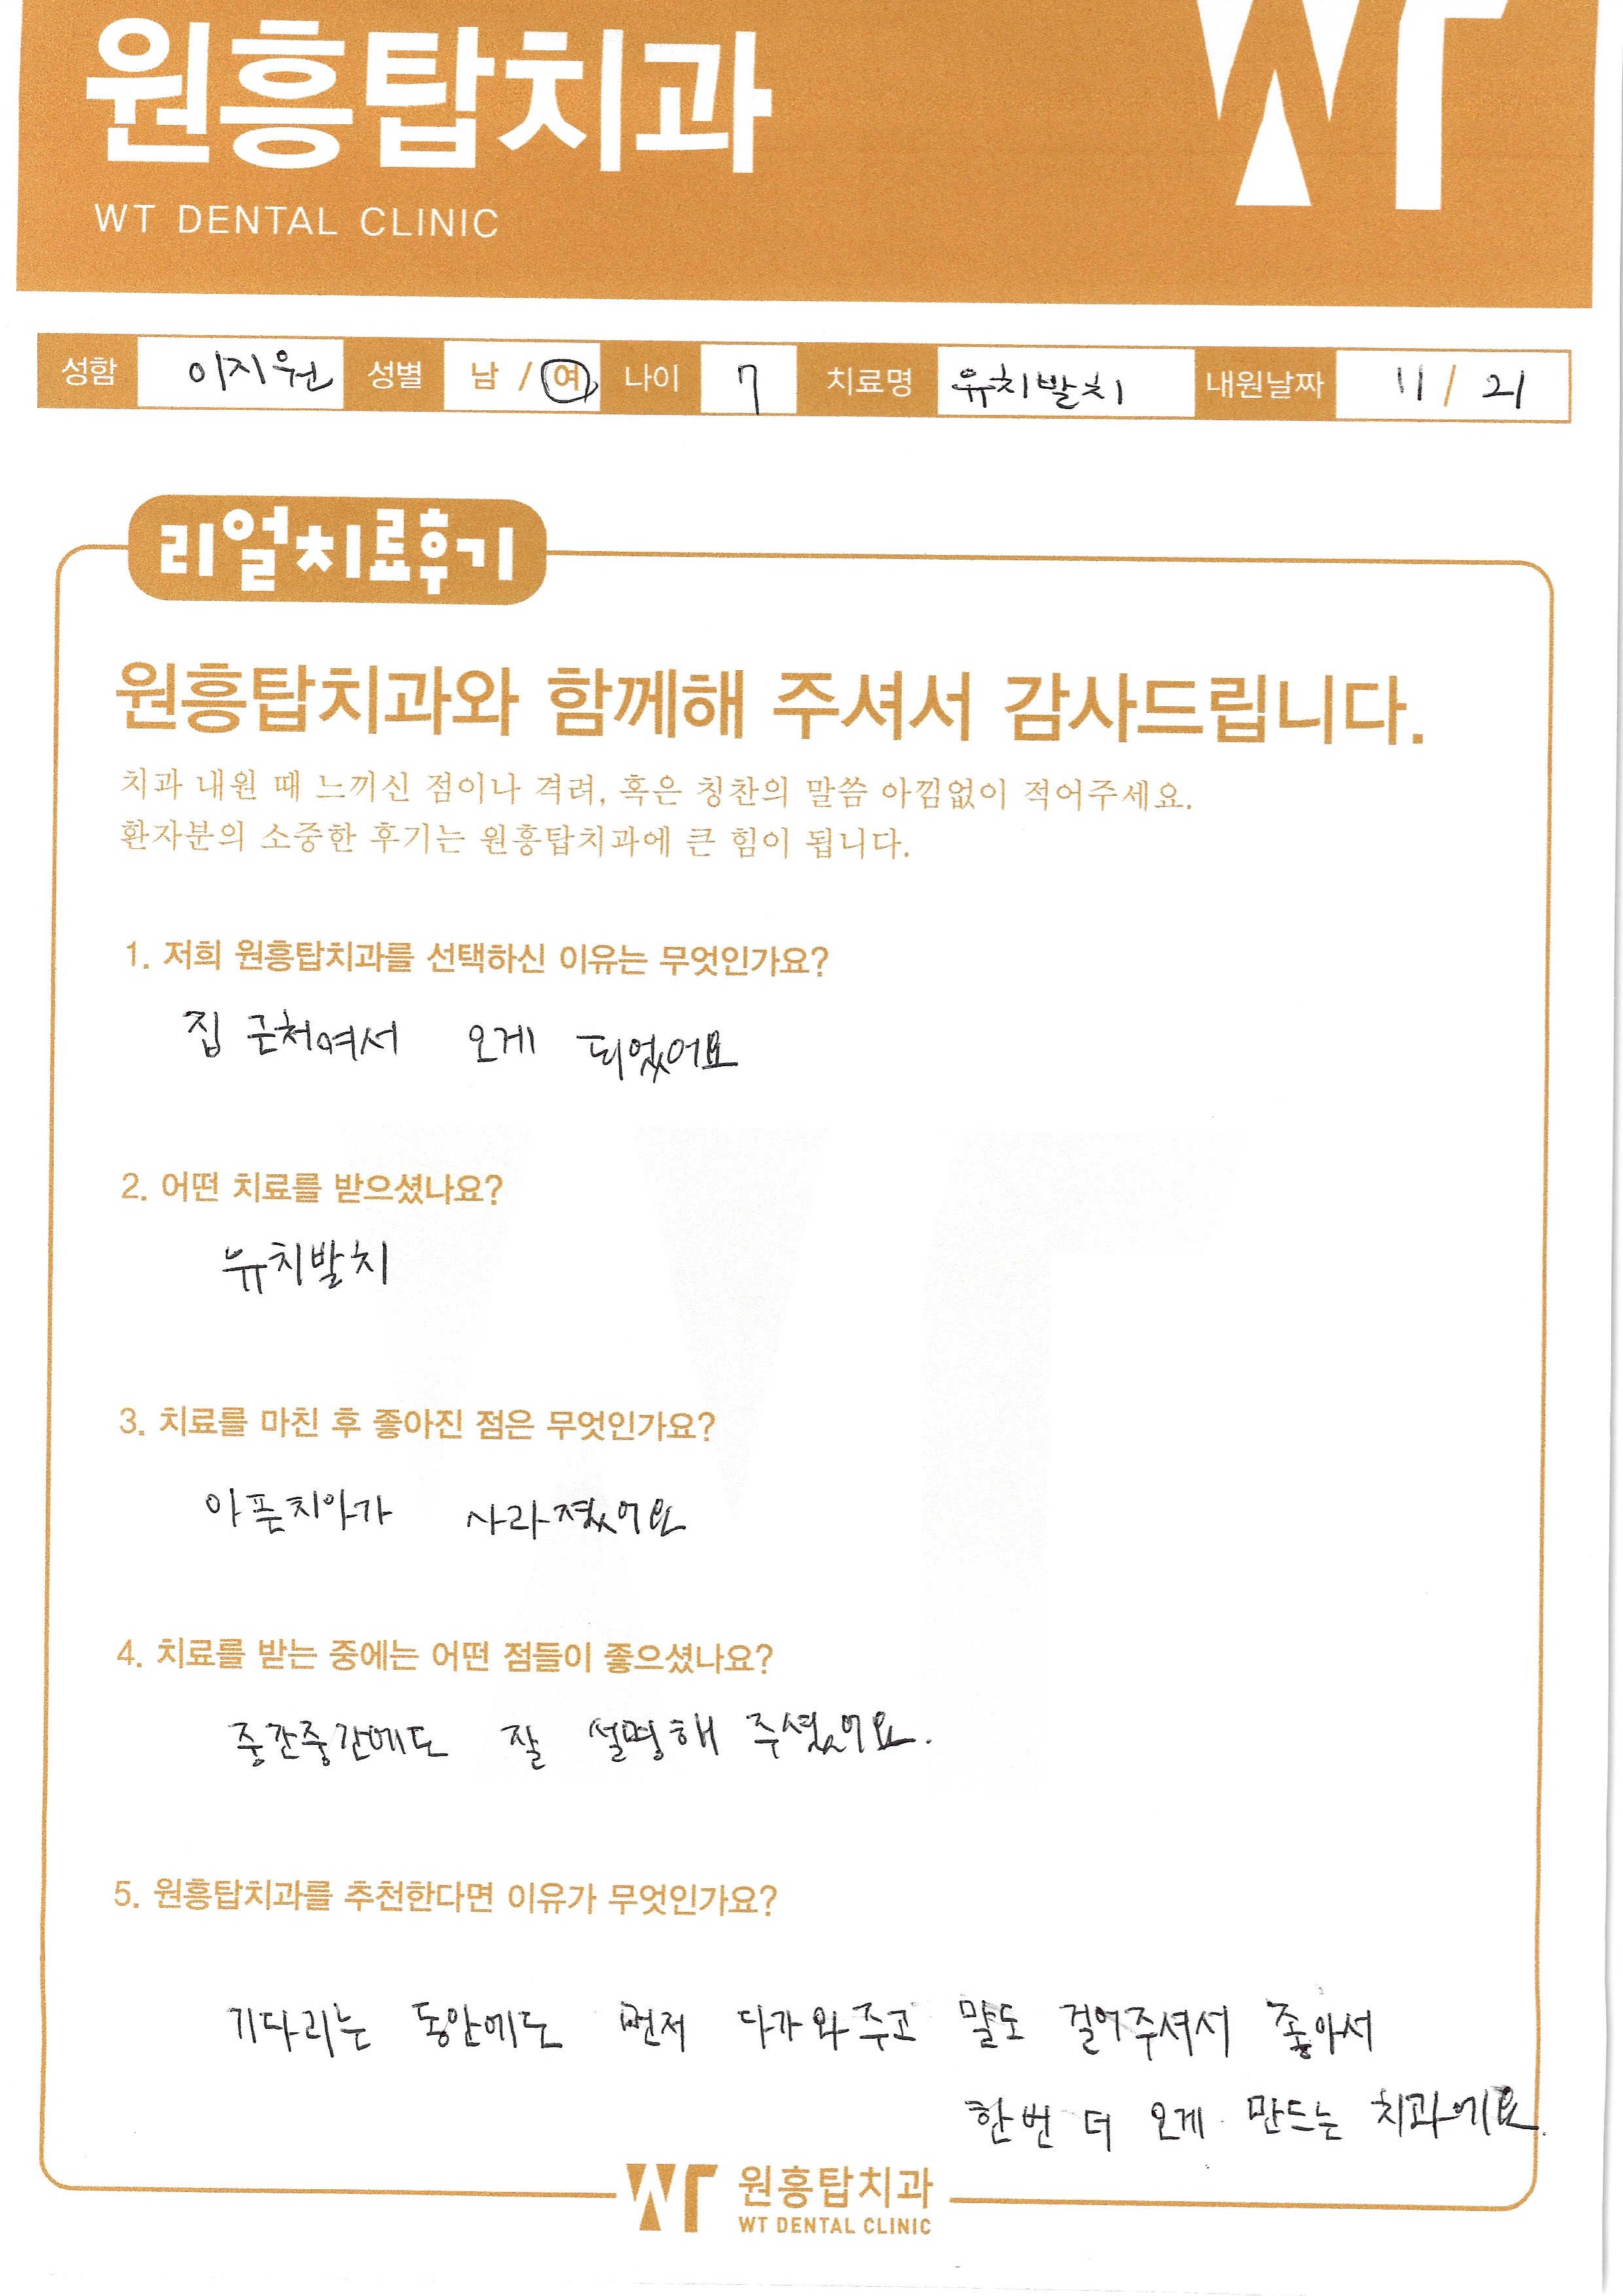 원흥탑치과
WT DENTAL CLINIC
성함 이지원 성별 남 / 여 나이 7 치료명 유치발치 내원날짜 11 / 21
리얼치료후기
원흥탑치과와 함께해 주셔서 감사드립니다.
치과 내원 때 느끼신 점이나 격려, 혹은 칭찬의 말씀 아낌없이 적어주세요.
환자분의 소중한 후기는 원흥탑치과에 큰 힘이 됩니다.
1. 저희 원흥탑치과를 선택하신 이유는 무엇인가요?
집 근처여서 오게 되었어요
2. 어떤 치료를 받으셨나요?
유치발치
3. 치료를 마친 후 좋아진 점은 무엇인가요?
아픈치아가 사라졌어요
4. 치료를 받는 중에는 어떤 점들이 좋으셨나요?
중간중간에도 잘 설명해 주셨어요.
5. 원흥탑치과를 추천한다면 이유가 무엇인가요?
기다리는 동안에도 먼저 다가와주고 말도 걸어주셔서 좋아서
한번 더 오게 만드는 치과에요.
WT 원흥탑치과
WT DENTAL CLINIC